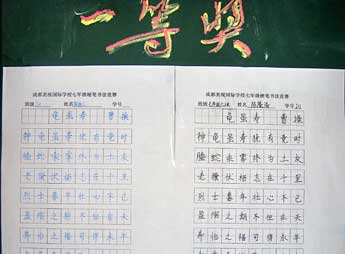 一等奖
成都美视国际学校七年级硬笔书法竞赛
班级 姓名 学号
龟虽寿 曹操
神龟虽寿犹有竟时
腾蛇乘雾终为土灰
老骥伏枥志在千里
烈士暮年壮心不已
盈缩之期不但在天
养怡之福可得永年
成都美视国际学校七年级硬笔书法竞赛
班级 姓名 学号
龟虽寿 曹操
神龟虽寿犹有竟时
腾蛇乘雾终为土灰
老骥伏枥志在千里
烈士暮年壮心不已
盈缩之期不但在天
养怡之福可得永年